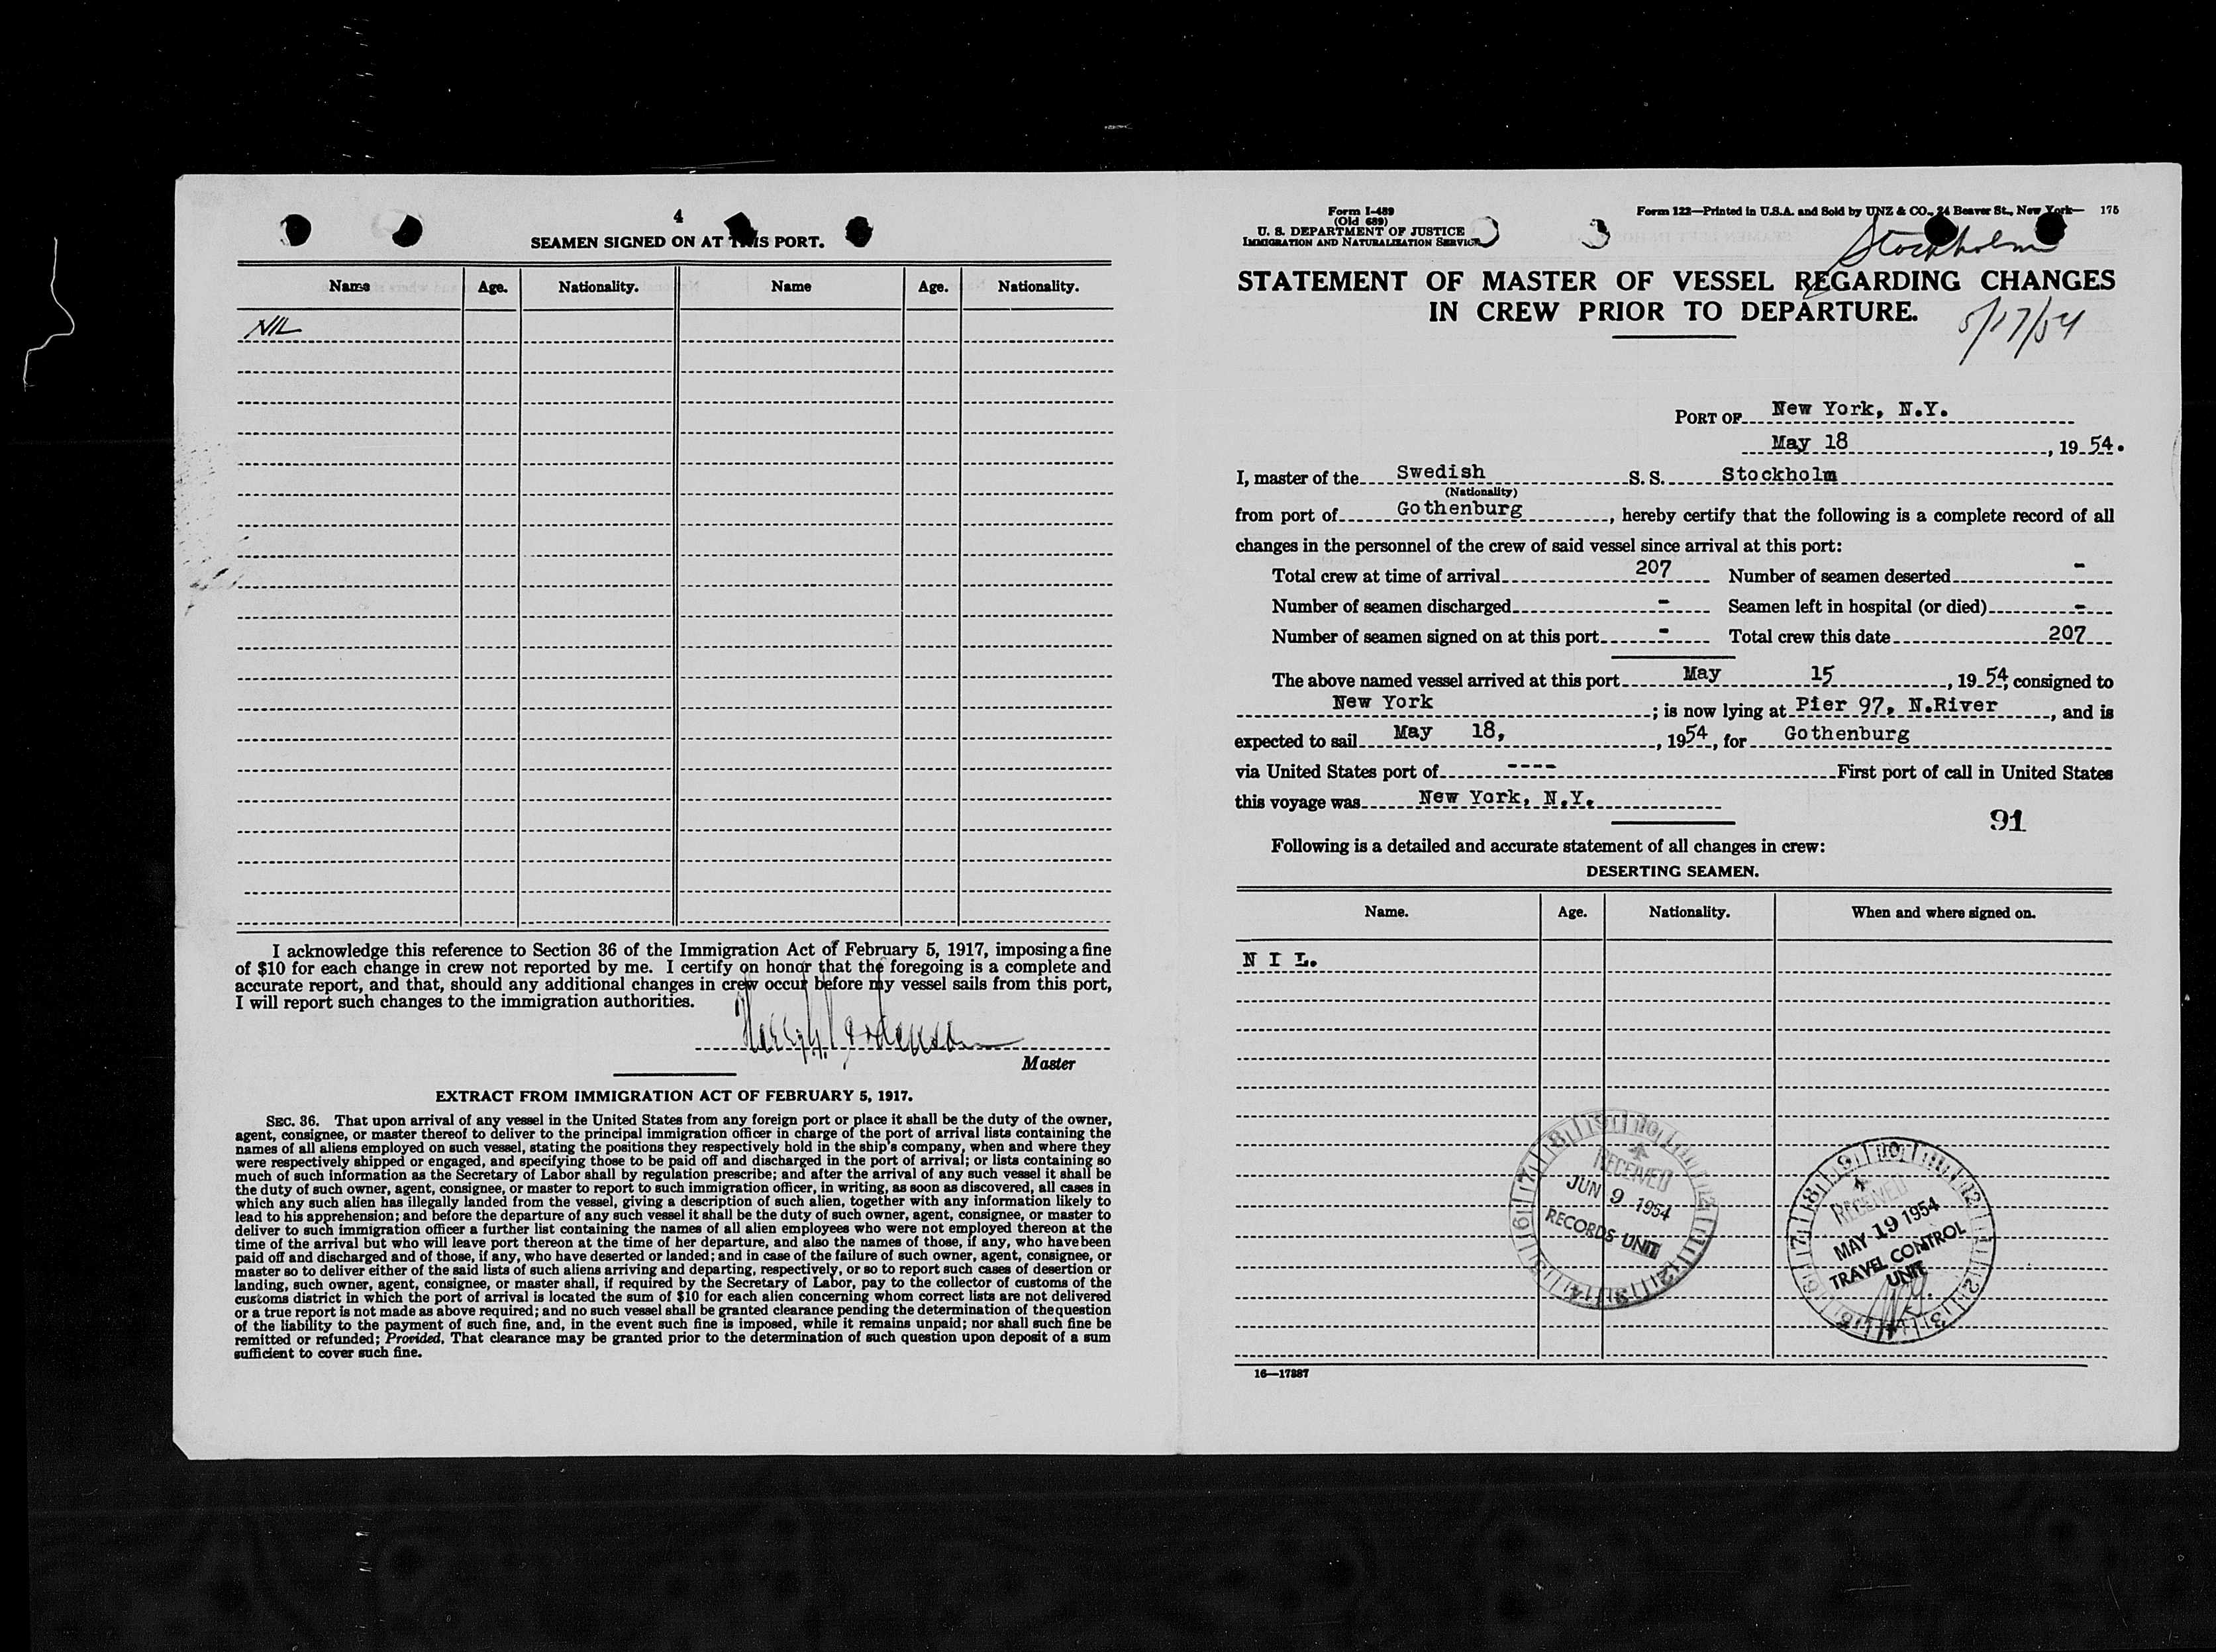 4
SEAMEN SIGNED ON AT THIS PORT.
Name Age. Nationality. Name Age. Nationality.
NIL
I acknowledge this reference to Section 36 of the Immigration Act of February 5, 1917, imposing a fine
of $10 for each change in crew not reported by me. I certify on honor that the foregoing is a complete and
accurate report, and that, should any additional changes in crew occur before my vessel sails from this port,
I will report such changes to the immigration authorities.
Master
EXTRACT FROM IMMIGRATION ACT OF FEBRUARY 5, 1917.
SEC. 36. That upon arrival of any vessel in the United States from any foreign port or place it shall be the duty of the owner,
agent, consignee, or master thereof to deliver to the principal immigration officer in charge of the port of arrival lists containing the
names of all aliens employed on such vessel, stating the positions they respectively hold in the ship's company, when and where they
were respectively shipped or engaged, and specifying those to be paid off and discharged in the port of arrival; or lists containing so
much of such information as the Secretary of Labor shall by regulation prescribe; and after the arrival of any such vessel it shall be
the duty of such owner, agent, consignee, or master to report to such immigration officer, in writing, as soon as discovered, all cases in
which any such alien has illegally landed from the vessel, giving a description of such alien, together with any information likely to
lead to his apprehension; and before the departure of any such vessel it shall be the duty of such owner, agent, consignee, or master to
deliver to such immigration officer a further list containing the names of all alien employees who were not employed thereon at the
time of the arrival but who will leave port thereon at the time of her departure, and also the names of those, if any, who have been
paid off and discharged and of those, if any, who have deserted or landed; and in case of the failure of such owner, agent, consignee, or
master so to deliver either of the said lists of such aliens arriving and departing, respectively, or so to report such cases of desertion or
landing, such owner, agent, consignee, or master shall, if required by the Secretary of Labor, pay to the collector of customs of the
customs district in which the port of arrival is located the sum of $10 for each alien concerning whom correct lists are not delivered
or a true report is not made as above required; and no such vessel shall be granted clearance pending the determination of the question
of the liability to the payment of such fine, and, in the event such fine is imposed, while it remains unpaid; nor shall such fine be
remitted or refunded; Provided, That clearance may be granted prior to the determination of such question upon deposit of a sum
sufficient to cover such fine.
Form I-489
(Old 689)
U. S. DEPARTMENT OF JUSTICE
IMMIGRATION AND NATURALIZATION SERVICE
Form 122—Printed in U.S.A. and Sold by UNZ & CO., 24 Beaver St., New York— 175
Stockholm
STATEMENT OF MASTER OF VESSEL REGARDING CHANGES
IN CREW PRIOR TO DEPARTURE.
5/17/54
PORT OF New York, N.Y.
May 18, 19 54.
I, master of the Swedish S. S. Stockholm
(Nationality)
from port of Gothenburg, hereby certify that the following is a complete record of all
changes in the personnel of the crew of said vessel since arrival at this port:
Total crew at time of arrival 207 Number of seamen deserted -
Number of seamen discharged - Seamen left in hospital (or died) -
Number of seamen signed on at this port - Total crew this date 207
The above named vessel arrived at this port May 15, 19 54, consigned to
New York; is now lying at Pier 97, N.River, and is
expected to sail May 18, , 1954, for Gothenburg
via United States port of ---- First port of call in United States
this voyage was New York, N.Y.
91
Following is a detailed and accurate statement of all changes in crew:
DESERTING SEAMEN.
Name. Age. Nationality. When and where signed on.
N I L.
RECEIVED
JUN 9 1954
RECORDS UNIT
RECEIVED
MAY 19 1954
TRAVEL CONTROL
UNIT
16—17887